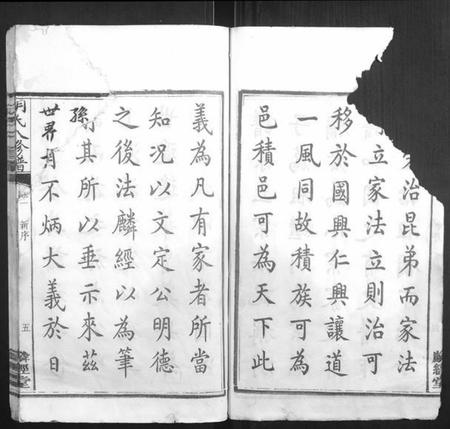 家治昆弟而家法
立家法立則治可
移於國興仁興讓道
一風同故積族可為
邑積邑可為天下此
義為凡有家者所當
知况以文定公明德
之後法麟經以為筆
其所以垂示來茲
孫
世界肯不炳大義於日
氏八修譜
新序
五
經堂